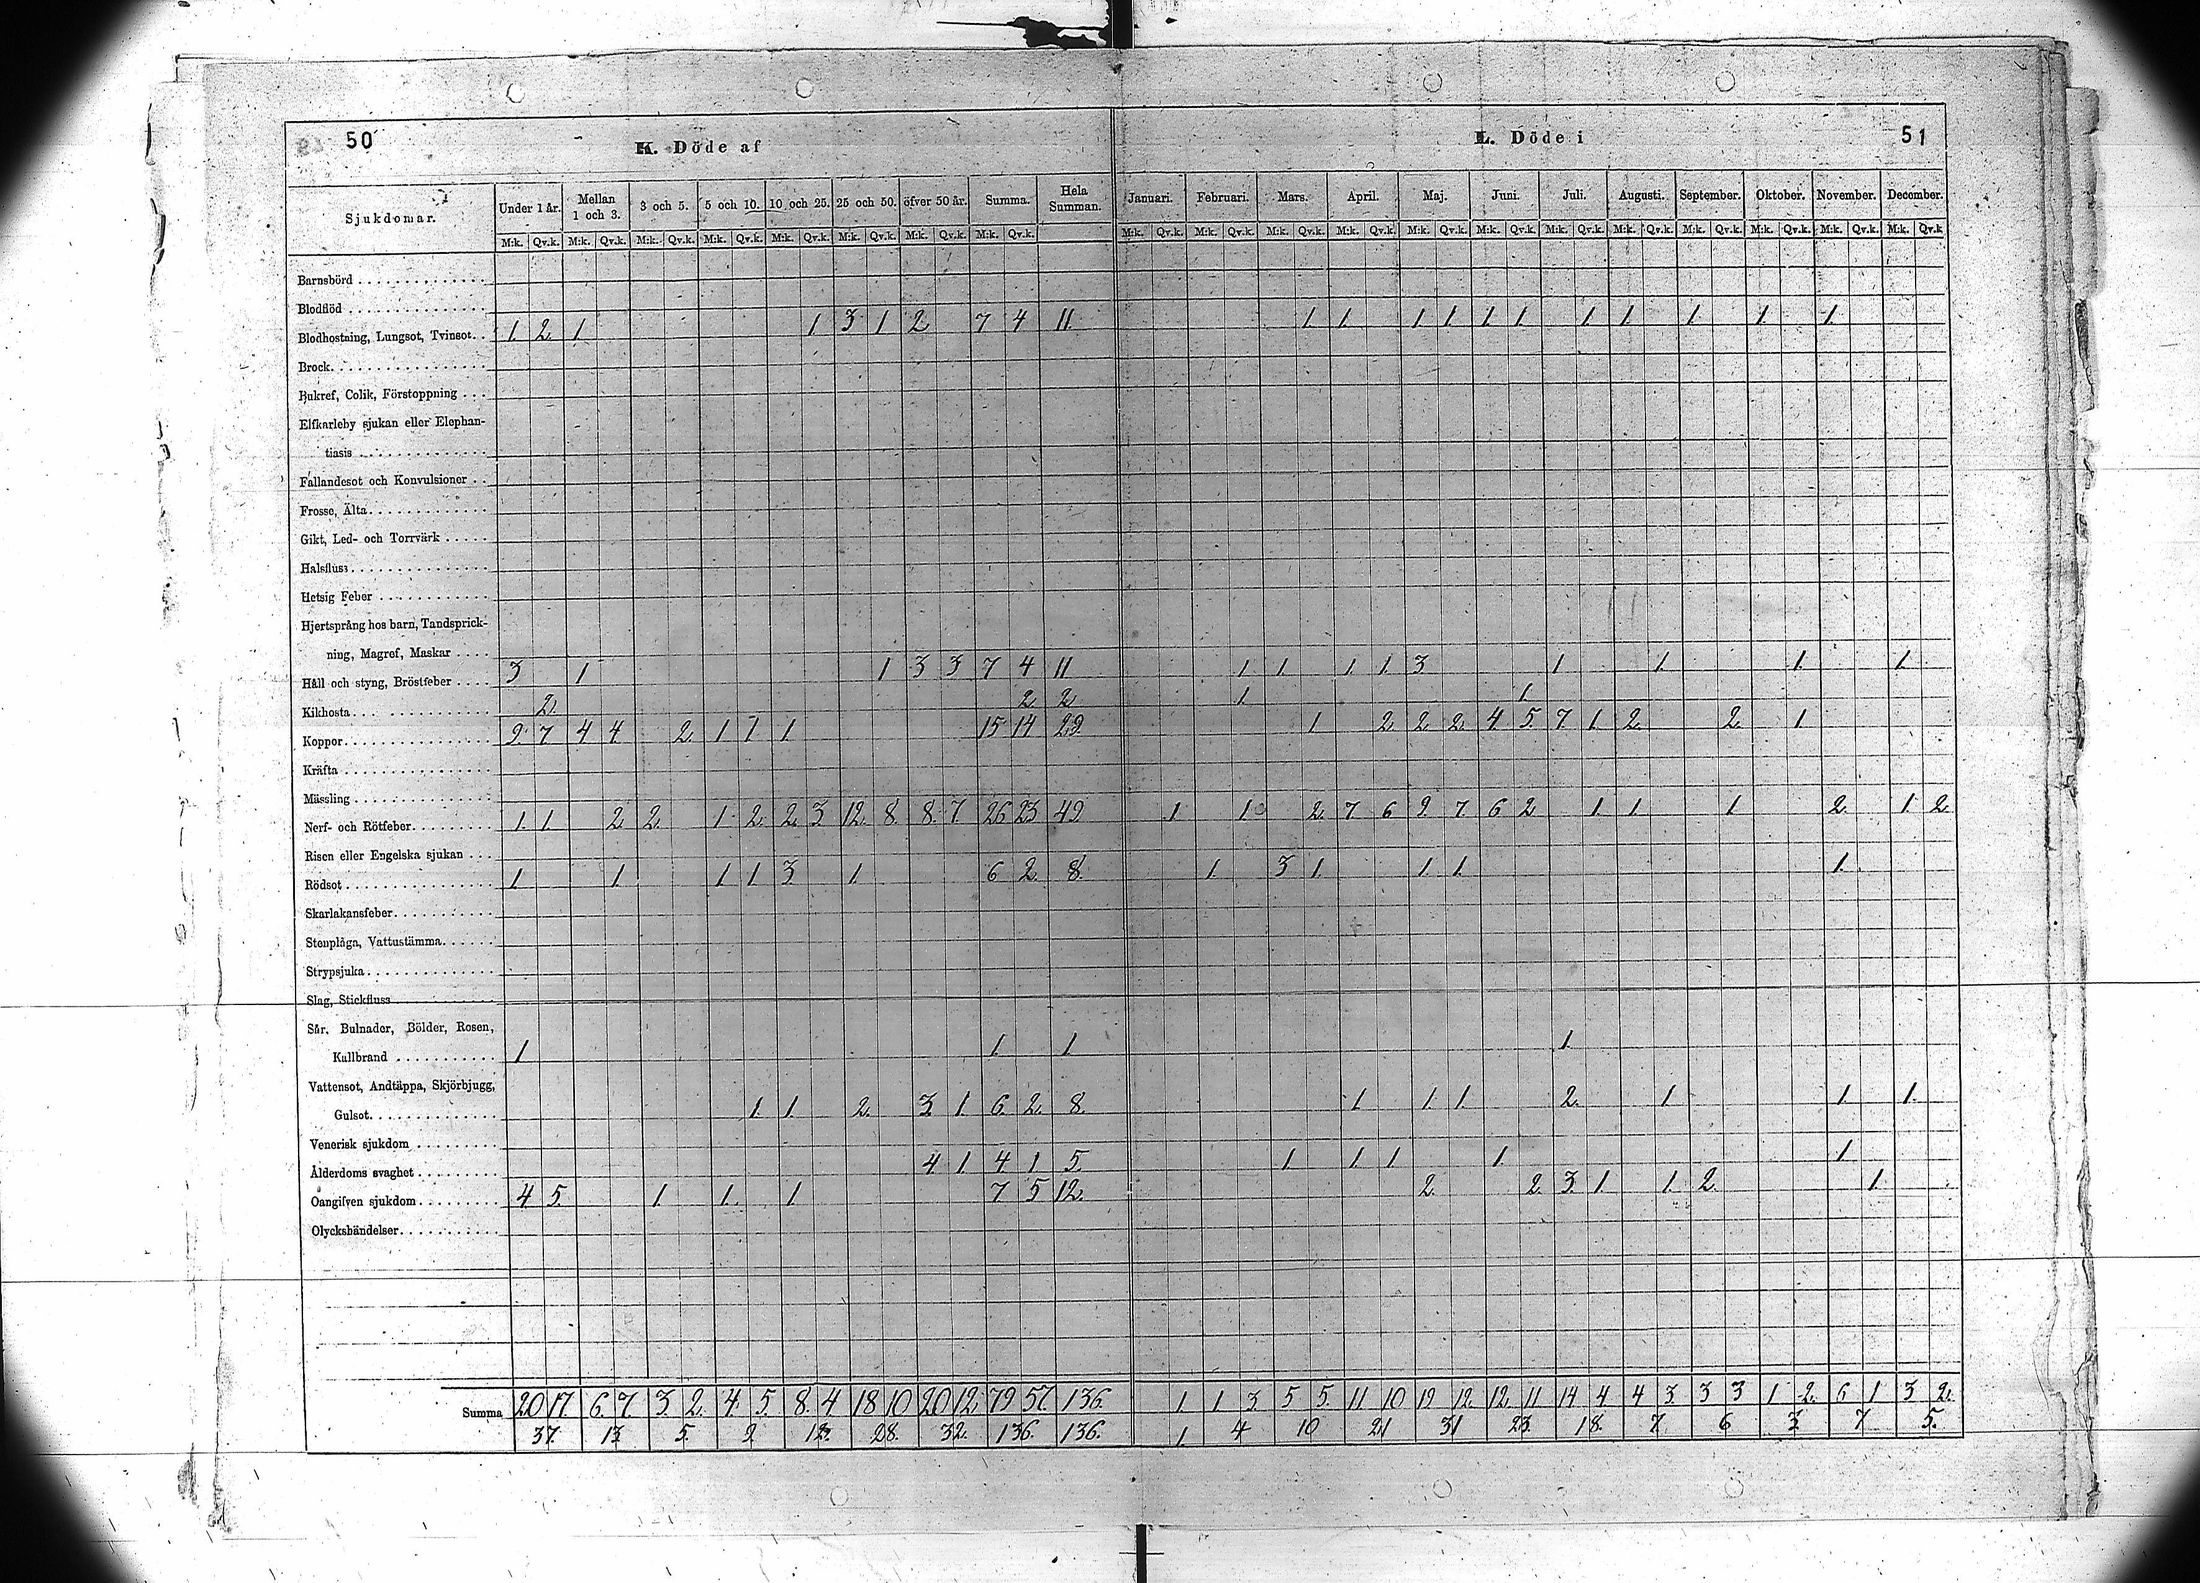 50 K. Döde af L. Döde i 51
Sjukdomar. Under 1 år. Mellan 1 och 3. 3 och 5. 5 och 10. 10 och 25. 25 och 50. öfver 50 år. Summa. Hela Summan. Januari. Februari. Mars. April. Maj. Juni. Juli. Augusti. September. Oktober. November. December.
M:k. Qv.k. M:k. Qv.k. M:k. Qv.k. M:k. Qv.k. M:k. Qv.k. M:k. Qv.k. M:k. Qv.k. M:k. Qv.k. M:k. Qv.k. M:k. Qv.k. M:k. Qv.k. M:k. Qv.k. M:k. Qv.k. M:k. Qv.k. M:k. Qv.k. M:k. Qv.k. M:k. Qv.k. M:k. Qv.k. M:k. Qv.k. M:k. Qv.k
Barnsbörd
Blodflöd
Blodhostning, Lungsot, Tvinsot. 1. 2. 1 1 3 1 2 7 4 11. 1. 1. 1 1 1 1 1. 1. 1. 1. 1.
Brock
Bukref, Colik, Förstoppning
Elfkarleby sjukan eller Elephan-
tiasis
Fallandesot och Konvulsioner
Frosse, Älta
Gikt, Led- och Torrvärk
Halsfluss
Hetsig Feber
Hjertsprång hos barn, Tandsprick-
ning, Magref, Maskar
Håll och styng, Bröstfeber 3 1 1 3 3 7 4 11 1 1 1 1 3 1. 1. 1. 1.
Kikhosta 2. 2 2 1. 1.
Koppor 9. 7 4 4 2. 1 1 1. 15 14 29. 1 2 2 2. 4 5. 7. 1. 2. 2. 1
Kräfta
Mässling
Nerf- och Rötfeber 1. 1. 2 2. 1. 2. 2. 3. 12. 8. 8. 7. 26 23 49 1 1 2. 7 6 9. 7 6 2 1. 1. 1. 2. 1. 2
Risen eller Engelska sjukan
Rödsot 1. 1 1 1 3. 1. 6 2. 8. 1 3 1. 1. 1. 1.
Skarlakansfeber
Stenplåga, Vattustämma
Strypsjuka
Slag, Stickfluss
Sår, Bulnader, Bölder, Rosen,
Kallbrand 1 1. 1 1.
Vattensot, Andtäppa, Skjörbjugg,
Gulsot 1. 1. 2. 3. 1. 6. 2. 8. 1. 1. 1. 2. 1. 1. 1.
Venerisk sjukdom
Ålderdoms svaghet 4 1. 4 1 5. 1 1 1 1. 1.
Oangifven sjukdom 4 5. 1 1. 1 7 5 12. 2. 2. 3. 1. 1. 2. 1.
Olyckshändelser
Summa 20 17. 6. 7. 3. 2. 4. 5. 8. 4 18 10 20 12 79 57. 136. 1 1 3 5 5. 11 10 19 12. 12. 11 14 4 4 3 3 3 1 2. 6 1 3 2.
37. 13 5. 9 12. 28. 32. 136. 136. 1. 4 10 21 31 23. 18. 7 6 3 7 5.